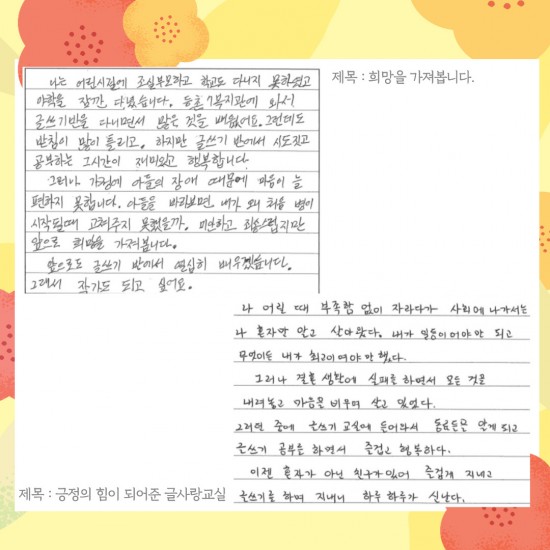 나는 어린시절에 조실부모하고 학교도 다니지 못하였고
야학을 잠깐 다녔습니다. 등촌7복지관에 와서
글쓰기반을 다니면서 많은 것을 배웠어요. 그런데도
받침이 많이 틀리고. 하지만 글쓰기 반에서 시도짓고
공부하는 그시간이 재미있고 행복합니다.
그러나 가정에 아들의 장애 때문에 마음이 늘
편하지 못합니다. 아들을 바라보면. 내가 왜 처음 병이
시작될때 고쳐주지 못했을까. 미안하고 죄송스럽지만
앞으로 희망을 가져봅니다.
앞으로도 글쓰기 반에서 열심히 배우겠습니다.
그래서 작가도 되고 싶어요.
제목 : 희망을 가져봅니다.
나 어릴 때 부족함 없이 자라다가 사회에 나가서는
나 혼자만 알고 살아왔다. 내가 일등이어야만 되고
무엇이든 내가 최고이여야만 했다.
그러나 결혼 생활에 실패를 하면서 모든 것을
내려놓고 마음을 비우며 살고 있었다.
그러던 중에 글쓰기 교실에 들어와서 동료들을 알게 되고
글쓰기 공부를 하면서 즐겁고 행복하다.
이젠 혼자가 아닌 친구가 있어 즐겁게 지내고
글쓰기를 하며 지내니 하루 하루가 신난다.
제목 : 긍정의 힘이 되어준 글사랑교실